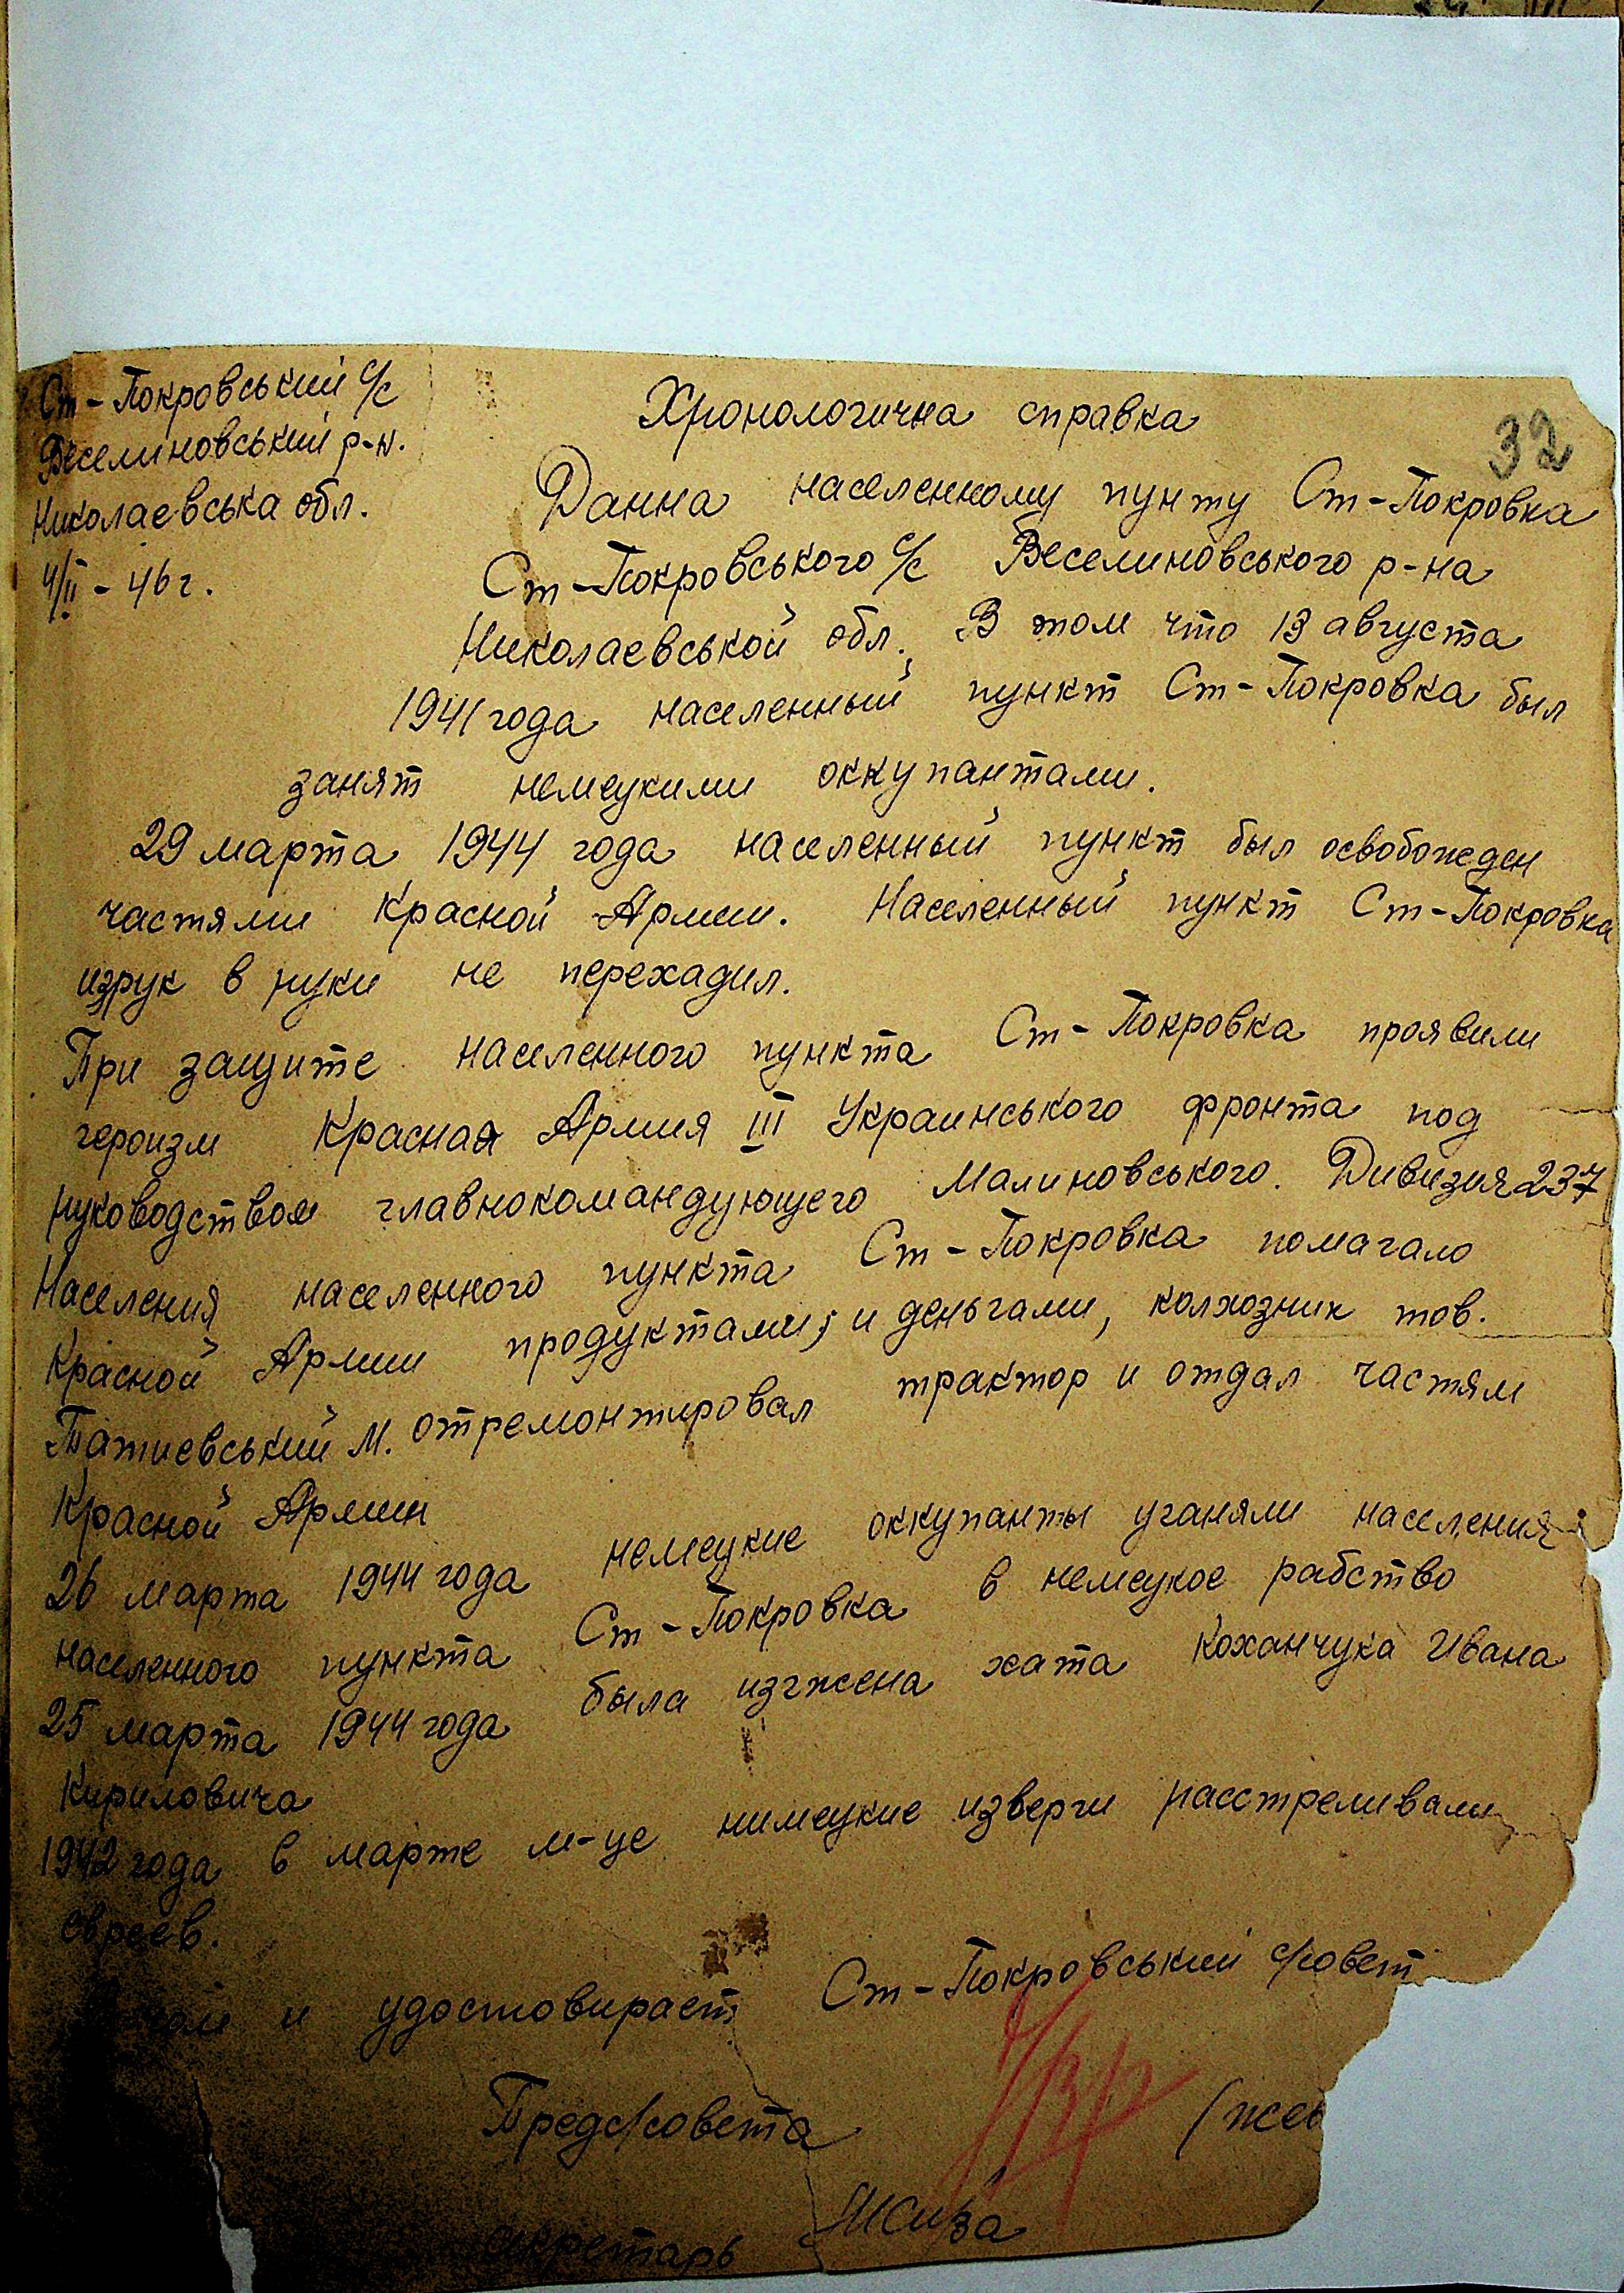 Ст-Покровський с/с
Веселиновський р-н.
Николаевська обл.
4/II - 46 г.
32
Хронологична справка
Данна населенному пункту Ст-Покровка
Ст-Покровського с/с Веселиновського р-на
Николаевськой обл. В том что 13 августа
1941 года населенный пункт Ст-Покровка был
занят немецкими оккупантами.
29 марта 1944 года населенный пункт был освобожден
частями Красной Армии. Населенный пункт Ст-Покровка
изрук в руки не перехадил.
При защите населенного пункта Ст-Покровка проявили
героизм Красная Армия III Украинського фронта под
руководством главнокомандующего Малиновського. Дивизия 237
Населения населенного пункта Ст-Покровка помагало
Красной Армии продуктами, и деньгами, колхозник тов.
Татиевський М. отремонтировал трактор и отдал частям
Красной Армии
26 марта 1944 года немецкие оккупанты уганяли населения
населенного пункта Ст-Покровка в немецкое рабство
25 марта 1944 года была изгжена хата Коханчука Ивана
Кириловича
1942 года в марте м-це нимецкие изверги расстреливали
евреев.
и удостовирает Ст-Покровський с/совет
Предс/совета (жев
секретарь